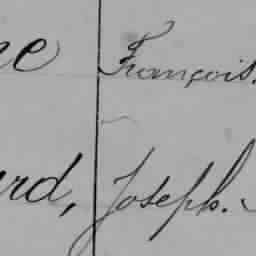 ce François.
urd, Joseph.